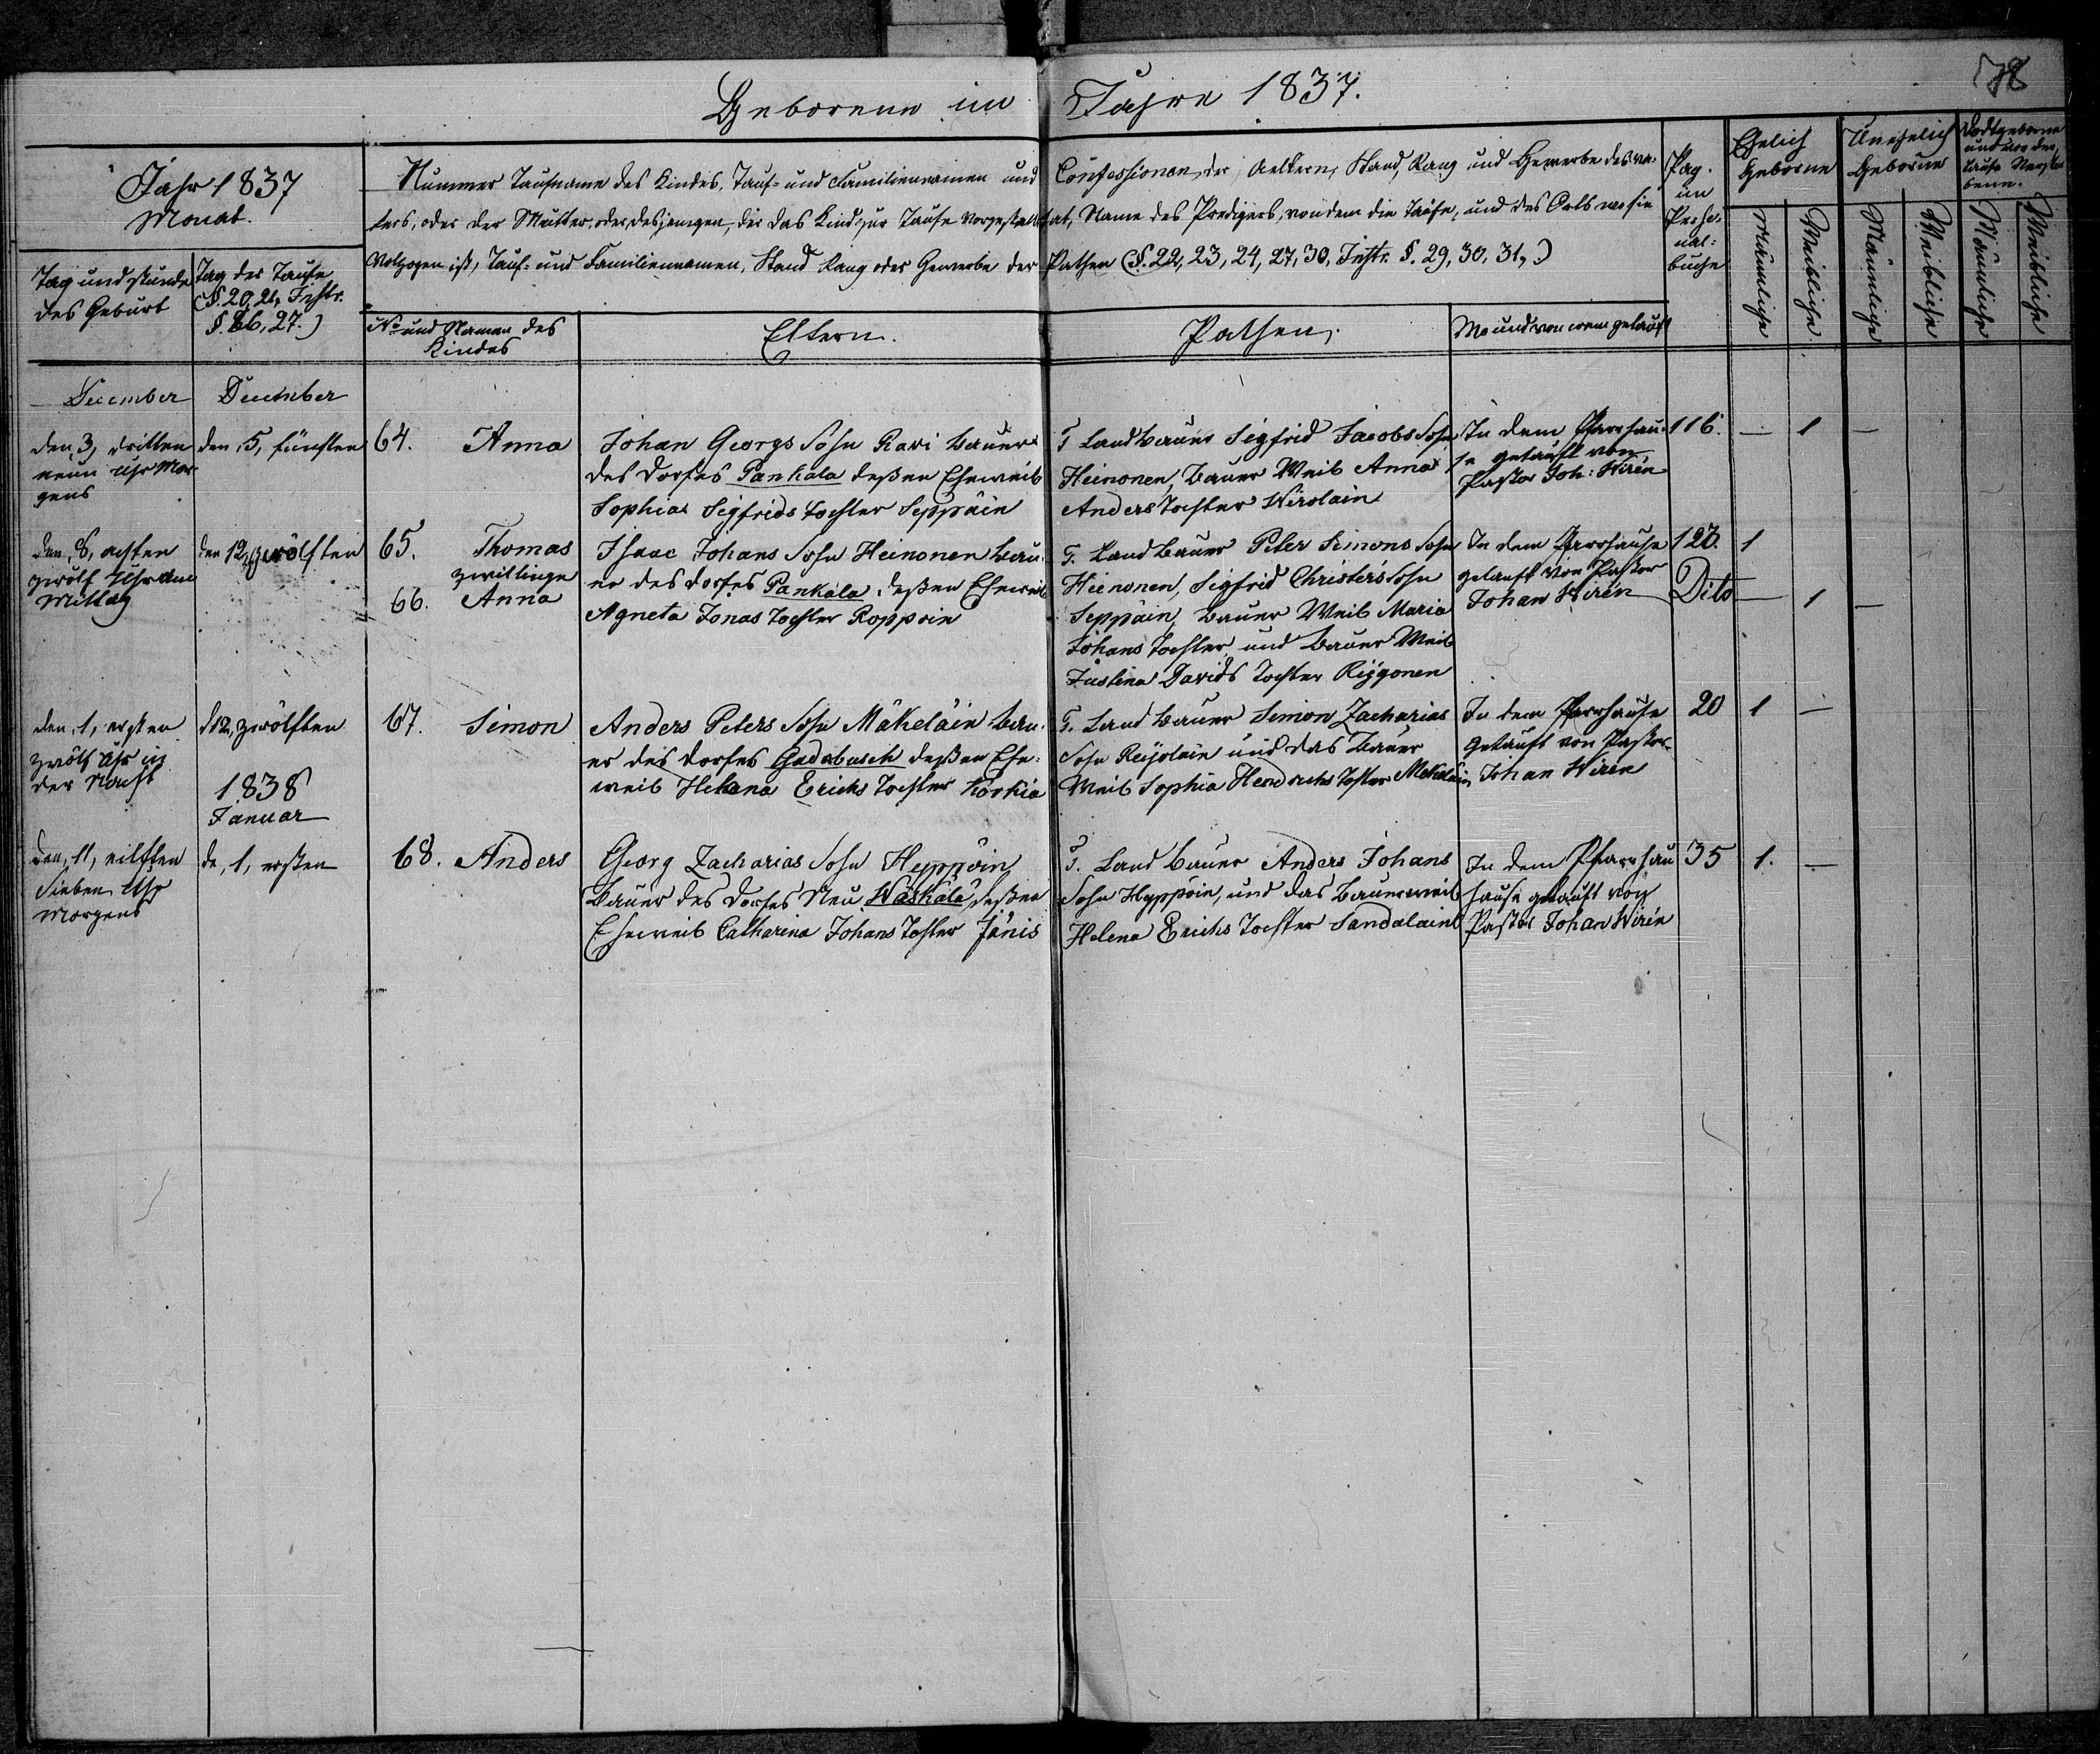 Geborene im Jahre 1837.
78
Jahr 1837
Monat.
Tag und Stunde
des Geburt
Tag der Taufe
(§. 20, 21, Instr.
§. 26, 27.)
Nummer Taufname des Kindes, Tauf- und Familiennamen und Confessionen der Aeltern, Stand, Rang und Gewerbe des va-
ters, oder der Mutter, oder desjenigen, der das Kind zur Taufe vorgestellt hat, Name des Predigers, von dem die Taufe, und des Orts wo sie
Volzogen ist, Tauf- und Familiennamen, Stand Rang oder Gewerbe der Pathen (§. 22, 23, 24, 27, 30, Instr. §. 29, 30, 31,)
No und Namen des
Kindes
Eltern.
Pathen,
Wo und von wem getauft
Pag.
im
Perso-
nal-
buche
Ehelich
Geborne
Unehelich
Geborne
Todtgeborne
und vor der
Taufe Verstor-
bene.
Männliche
Weibliche.
Männliche
Weibliche
Männliche
Weibliche
December
December
den, 3, dritten
neun Uhr Mor-
gens
den, 5, fünften
64. Anna
Johan Georgs Sohn Kavi Bauer
des Dorfes Pankala deßen Eheweib
Sophia Sigfrids Tochter Seppäin
T Land Bauer Sigfrid Jacobs Sohn
Heinonen, Bauer Weib Anna
Anders Tochter Wirolain
In dem Pfarrhau-
se getauft von
Pastor Joh: Wirén
116. — 1 —
den, 8, achten
zwölf Uhr am
Mittag
den 12, zwölften
65. Thomas
zwillinge
66. Anna
Isaac Johans Sohn Heinonen Bau-
er des Dorfes Pankala, deßen Eheweib
Agneta Jonas Tochter Roppoin
T. Land Bauer Peter Simons Sohn
Heinonen, Sigfrid Christers Sohn
Seppäin, Bauer Weib Maria
Johans Tochter, und Bauer Weib
Justina Davids Tochter
In dem Parrhause
getauft von Pastor
Johan Wirén
120. 1
Dito — 1 —
den, 1, ersten
zwölf Uhr in
der Nacht
d 12, zwölften
67. Simon
Anders Peters Sohn Mäkeläin Bau-
er des Dorfes Gadebusch deßen Ehe-
weib Helena Erichs Tochter Korkia
T. Land Bauer Simon Zacharias
Sohn Reijolain und das Bauer
Weib Sophia Hendrichs Tochter Mekeläin
In dem Parrhause
Getauft von Pastor
Johan Wirén
20 1 —
1838
Januar
den, 11, eilften
Sieben Uhr
Morgens
de, 1, ersten
68. Anders
Georg Zacharias Sohn Heppöin
Bauer des Dorfes Neu Waskala, deßen
Eheweib Catharina Johans Tochter Jänis
T. Land Bauer Anders Johans
Sohn Hyppöin, und das Bauerweib
Helena Erichs Tochter Sandalain
In dem Pfarrhau
hause getauft von
Pastor Johan Wirén
35 1. —